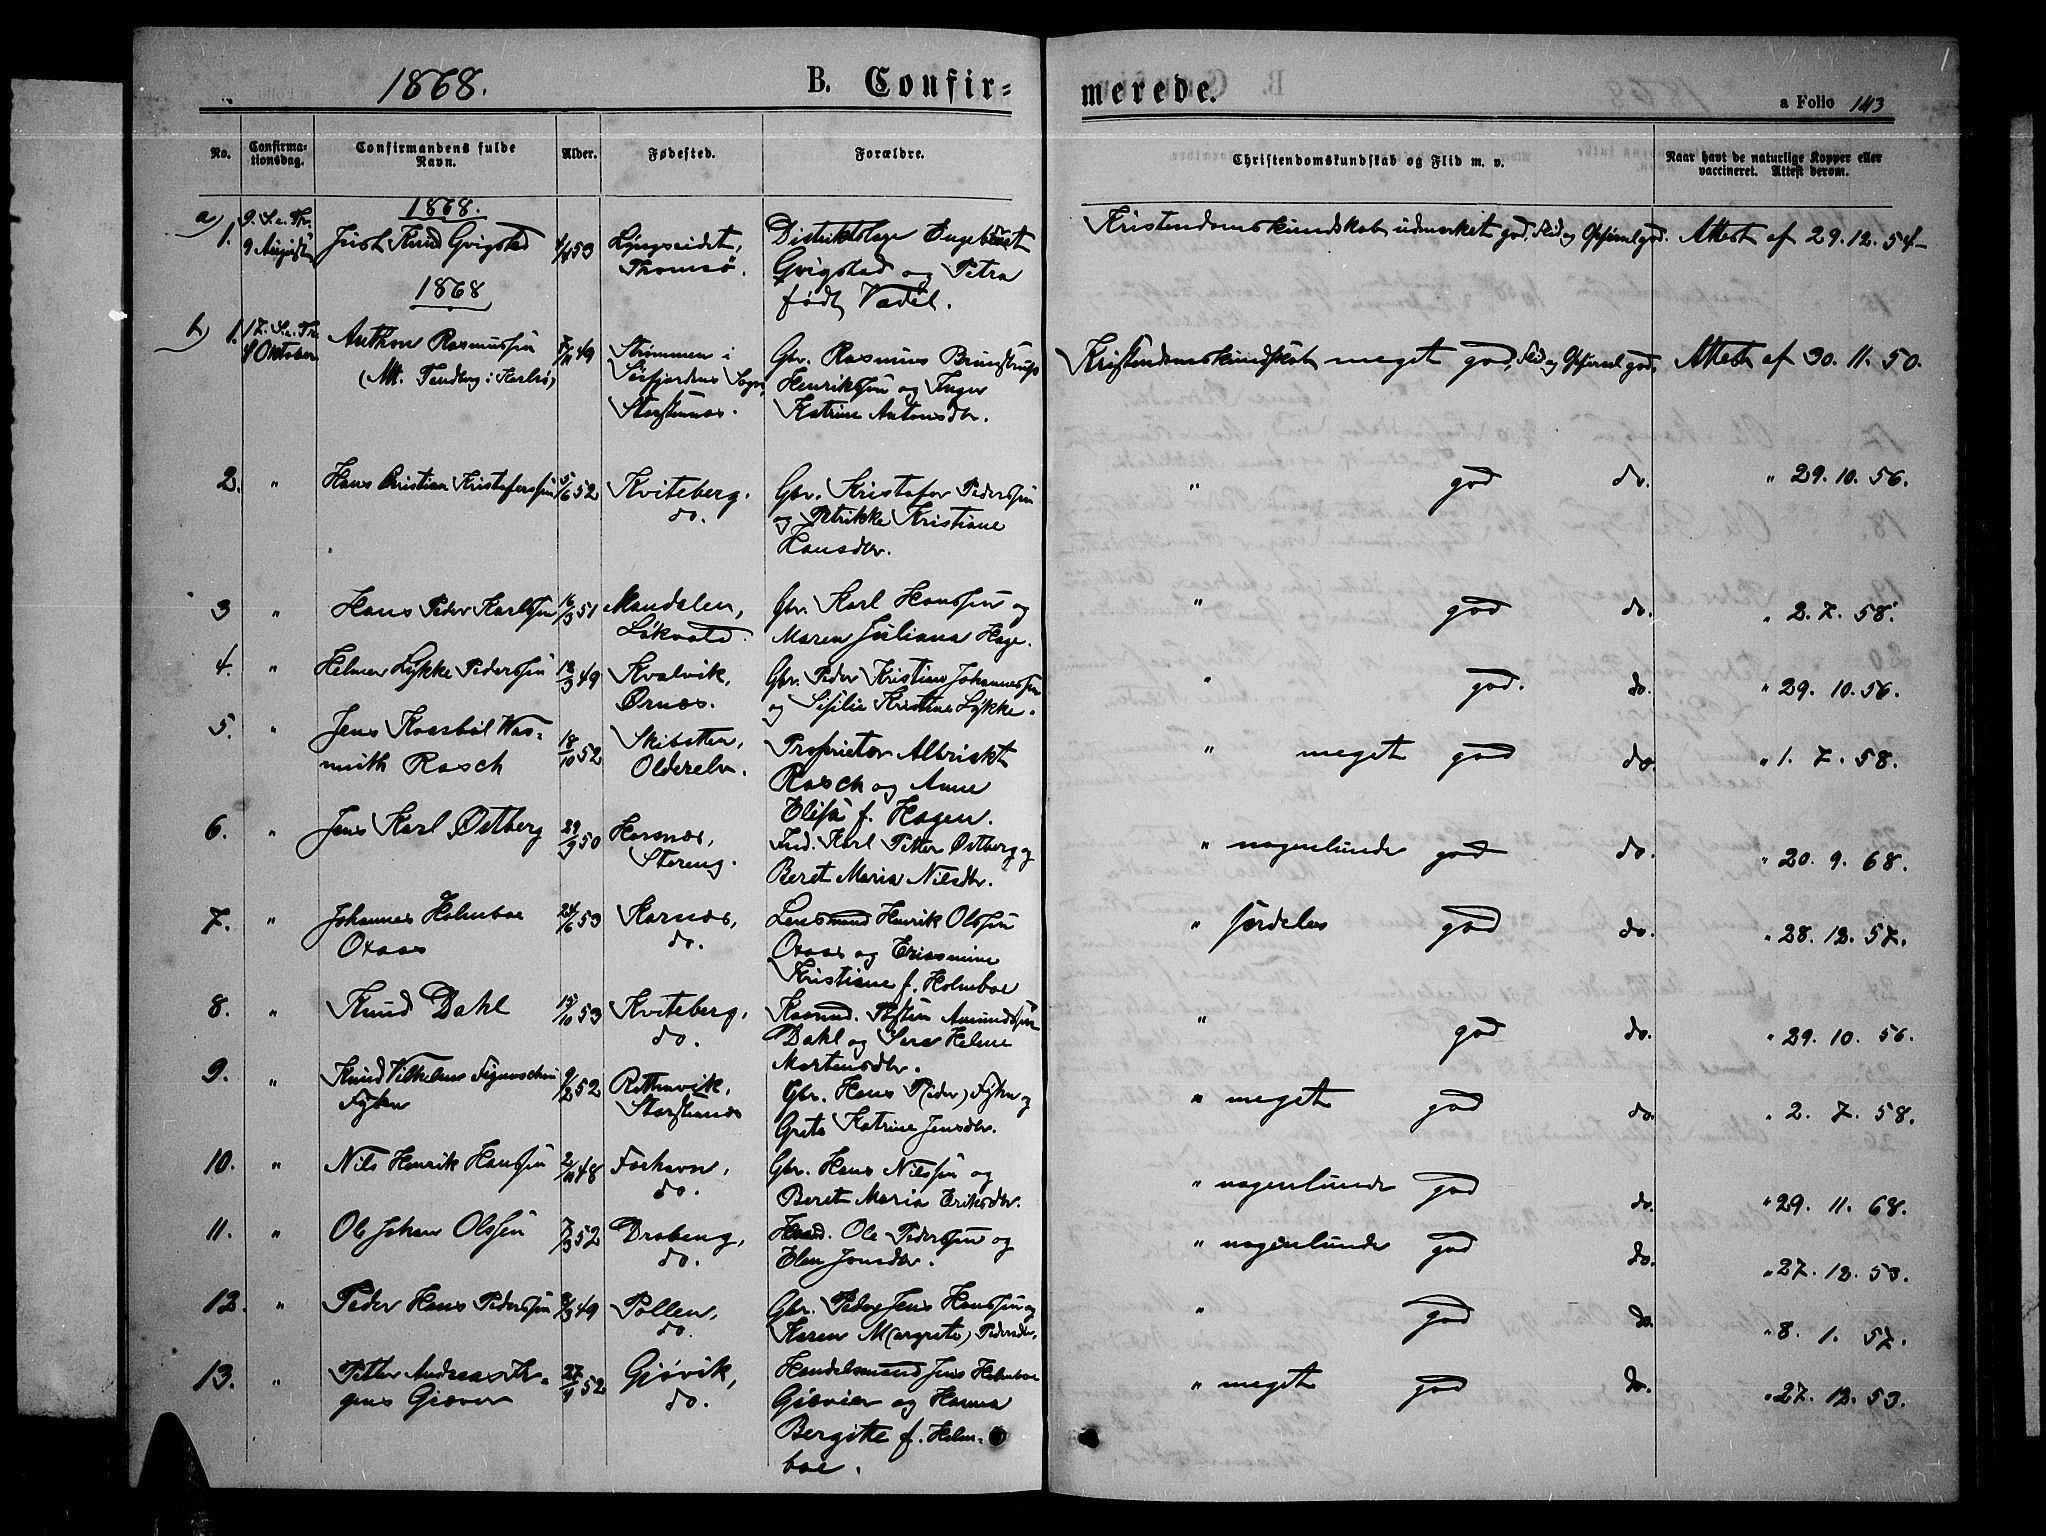 1868. B. Confir=
merede. a Folio 143
No. Confirma-tionsdag. Confirmandens fulde Navn. Alder. Fødested. Forældre. Christendomskundskab og Flid m. v. Naar havt de naturlige Kopper eller vaccineret. Attest derom.
1868.
a) 1. 9. S. e. Tr. 9 August Just Knud Qvigstad 4/4 53 Lyngseidet, Tromsø. Distriktslæge Engebret Qvigstad og Petra født Kristendomskundskab udmerket god, Flid og Opførsel god. Attest af 29. 12. 54
1868
b) 1. 17. S. e. Tr. 4 Oktober Anthon Rasmussen 49 Strømmen i Sørfjordens Sogn, Storstennæs. Gbr. Rasmus Henriksen og Inger Katrine Antonsdtr. Kristendomskundskab meget god, Flid og Opførsel god. Attest af 30. 11. 50.
(Att. Tandberg i Karlsø)
2. " Hans Christian Kristofersen 5/6 52 Kviteberg. do. Gbr. Kristofer Pedersen og Petrikke Kristiane Hansdtr. " god do. " 29. 10. 56.
3 " Hans Peder Karlsen 16/3 51 Mandalen, Løkvold. Gbr. Karl Hanssen og Maren Juliana Hage. " god do. " 2. 7. 58.
4. " Helmer Lykke Pedersen 12/3 49 Kvalvik, Ørnæs. Gbr. Peder Kristian Johannessen og Sisilie Kristine Lykke. " god. do. " 29. 10. 56.
5. " Jens Kraabøl Wasmuth Rasch 18/10 52 Skibotten, Olderelv. Proprietær Albrikt Rasch og Anne Elisa f. Hagen. " meget god do. " 1. 7. 58.
6. " Jens Karl Østberg 29/9 50 Horsnæs, Støreng. Ind. Karl Petter Østberg og Beret Maria Nilsdtr. " nogenlunde god do. " 20. 9. 68.
7. " Johannes Holmboe Oxaas 24/6 53 Karnæs, do. Lensmand Henrik Olsen Oxaas og Erasmine Kristiane f. Holmboe " særdeles god do. " 28. 12. 57.
8. " Knud Dahl 15/10 53 Kviteberg, do. Amundsen Dahl og Sara Helene Mortensdtr. " god do. " 29. 10. 56.
9. " Knud Vilhelm Fyken 9/2 52 Rottenvik, Storstennæs Gbr. Hans P(eder) Fyken og Grete Katrine Jensdtr. " meget god do. " 2. 7. 58.
10. " Nils Henrik Hanssen 2/11 48 Forhavn, do. Gbr. Hans Nilssen og Beret Maria Eriksdtr. " nogenlunde god do. " 29. 11. 68.
11. " Ole Johan Olssen 7/3 52 Drabeng, do. Ole Pederssen og Elen Jonsdtr. " nogenlunde god do. " 27. 12. 53.
12. " Peder Hans Pederssen 49 Pollen, do. Gbr. Peder Jens Hanssen og Karen M(argrete) Pedersdtr. " god do. " 8. 1. 57.
13. " Petter Andreas Irgens Giæver 27/9 52 Gjøvik, do. Handelsmand Jens Holmboe Giævier og Hanna Bergitte f. Holmboe. " meget god do. " 27. 12. 53.